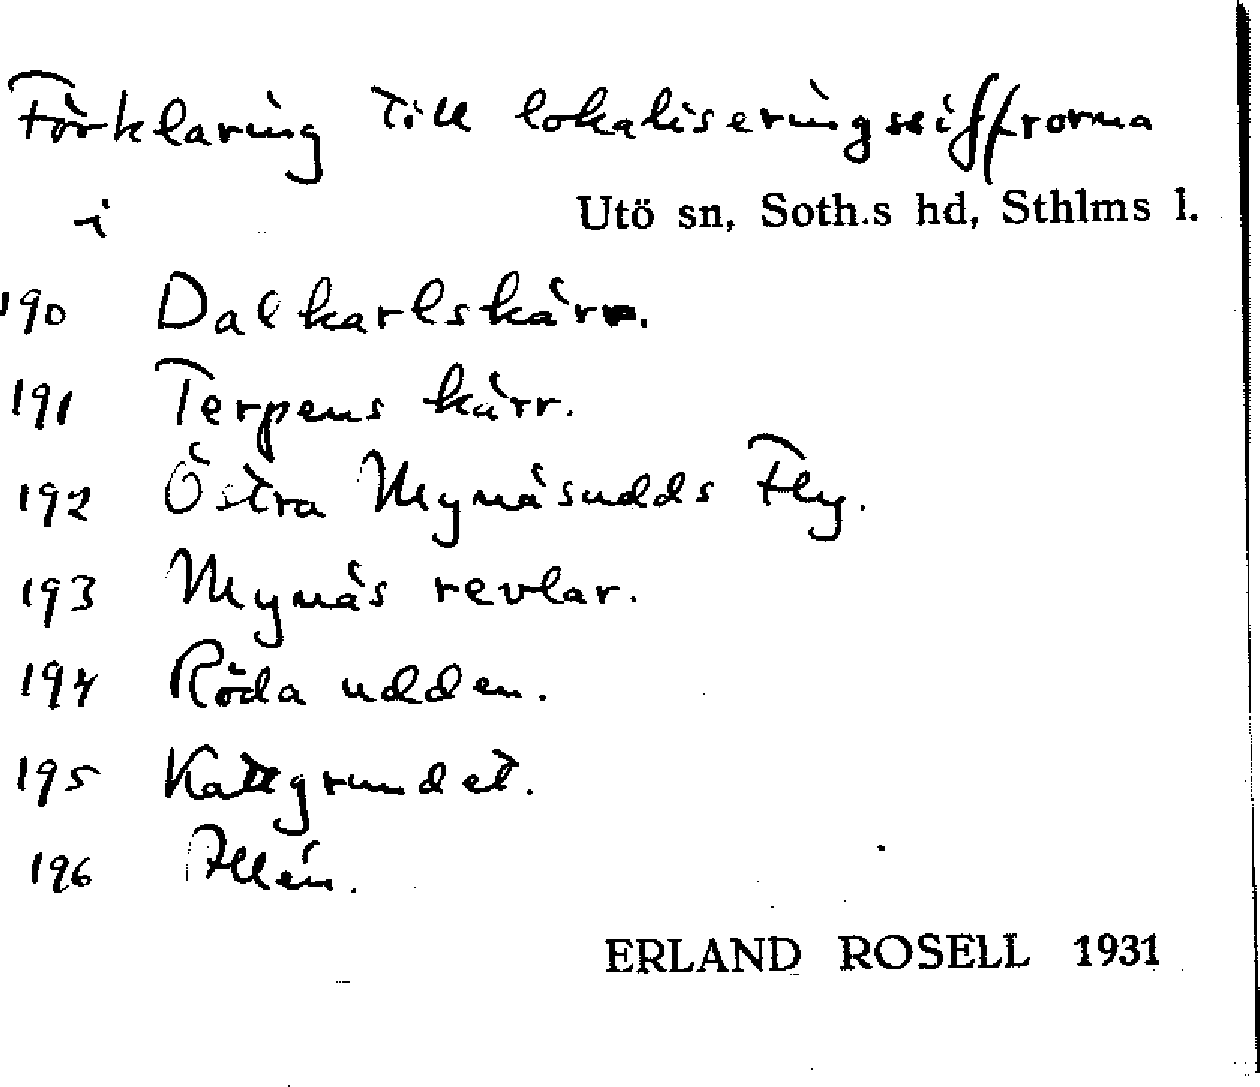 Förklaring till lokaliseringssiffrorna
i
Utö sn, Soth.s hd, Sthlms l.
190 Dalkarlskärr.
191 Terpens kärr.
192 Östra Mynäsudds Fly.
193 Mynäs revlar.
194 Röda udden.
195 Kattgrundet.
196 Allén.
ERLAND ROSELL 1931